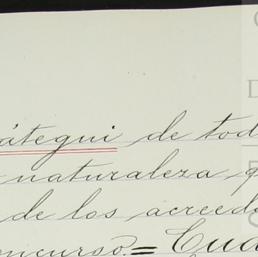 átegui de tod
naturaleza q
de los acreedo
oncurso.= Cua